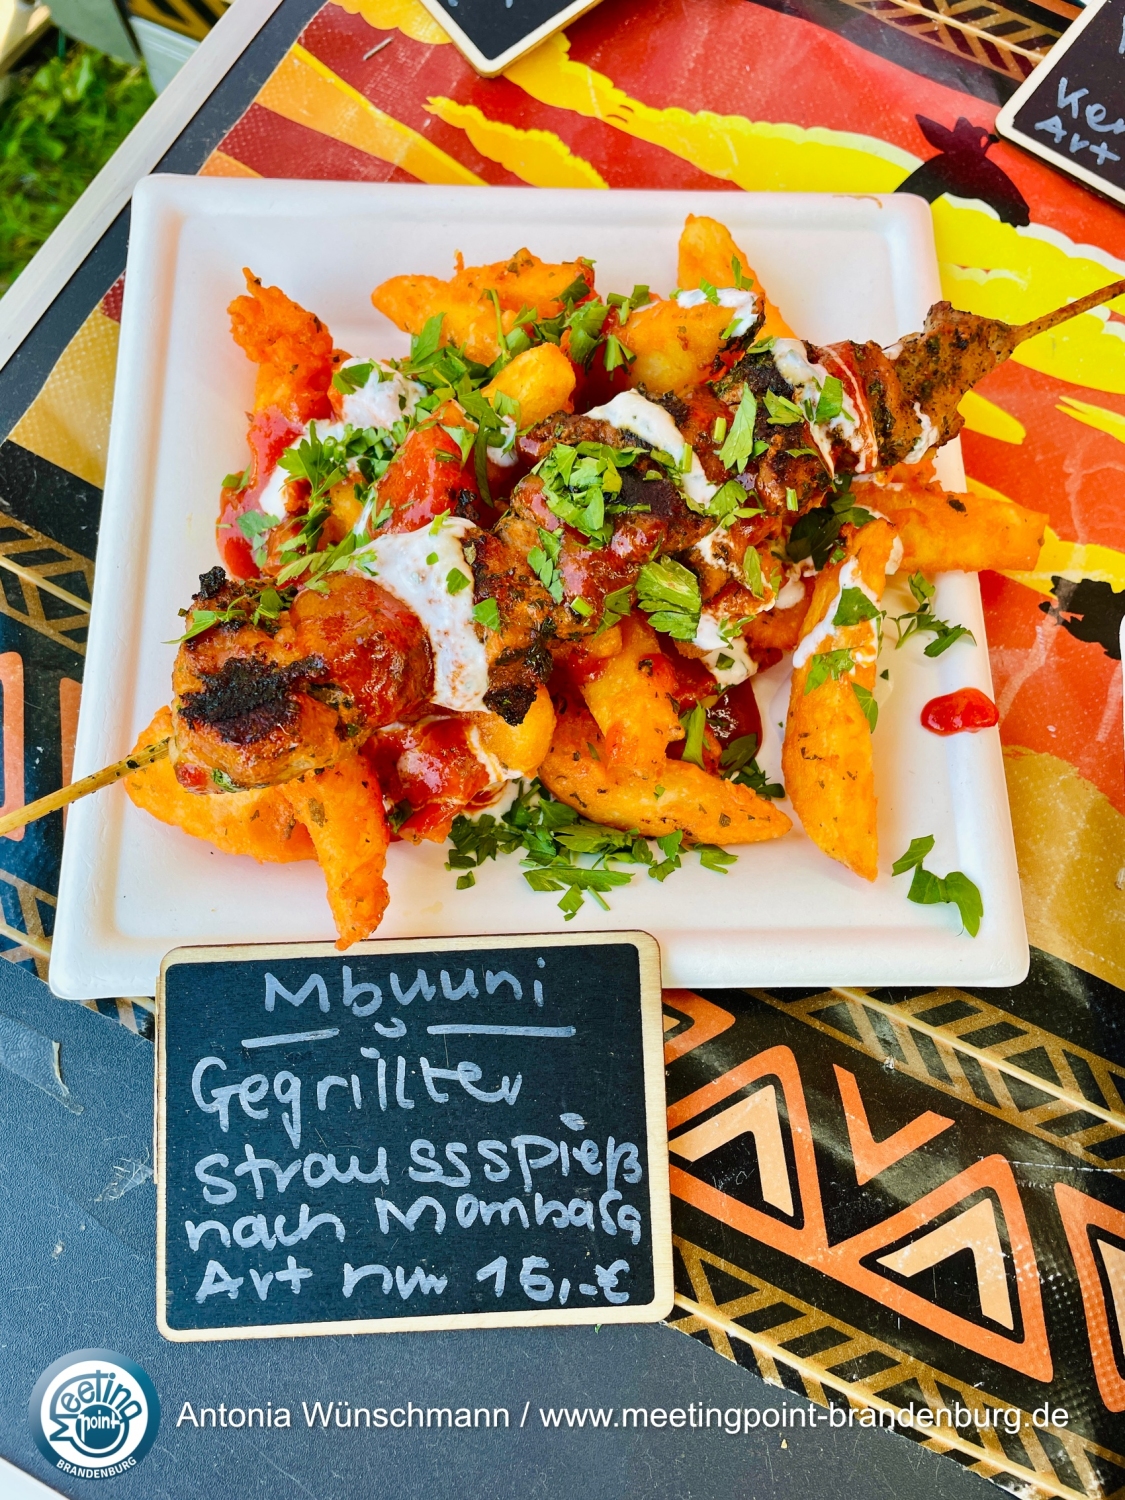 Ken
Art
Mbuuni
Gegrillter
straussspieß
nach Mombasa
Art nur 16,-€
Meeting
point
BRANDENBURG
Antonia Wünschmann / www.meetingpoint-brandenburg.de